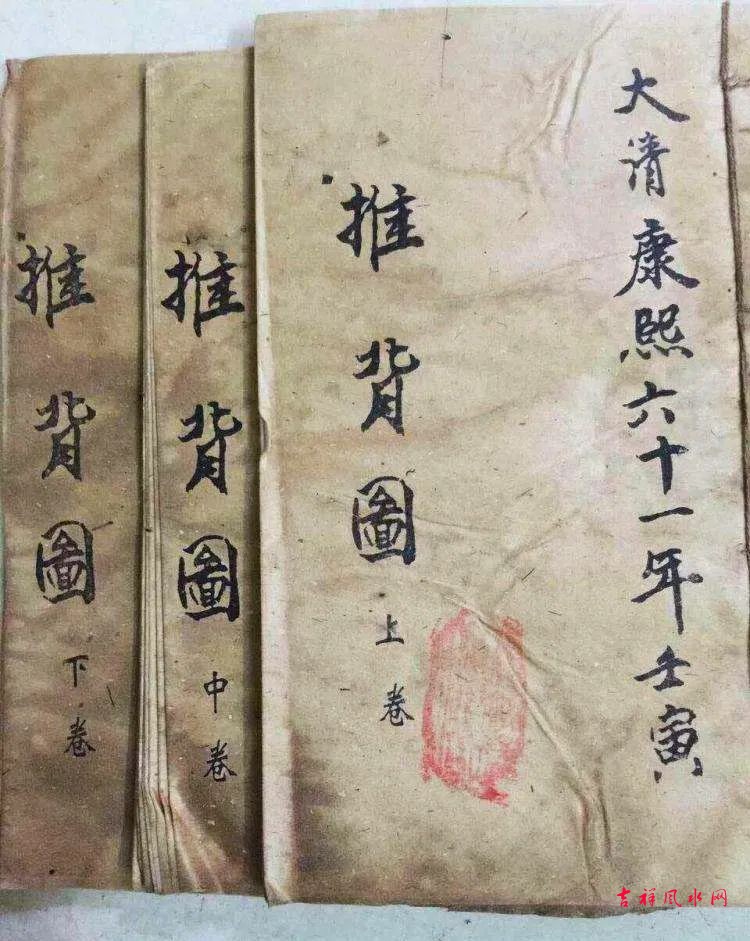 大清康熙六十一年壬寅
推背圖
上卷
推背圖
中卷
推背圖
下卷
吉祥风水网